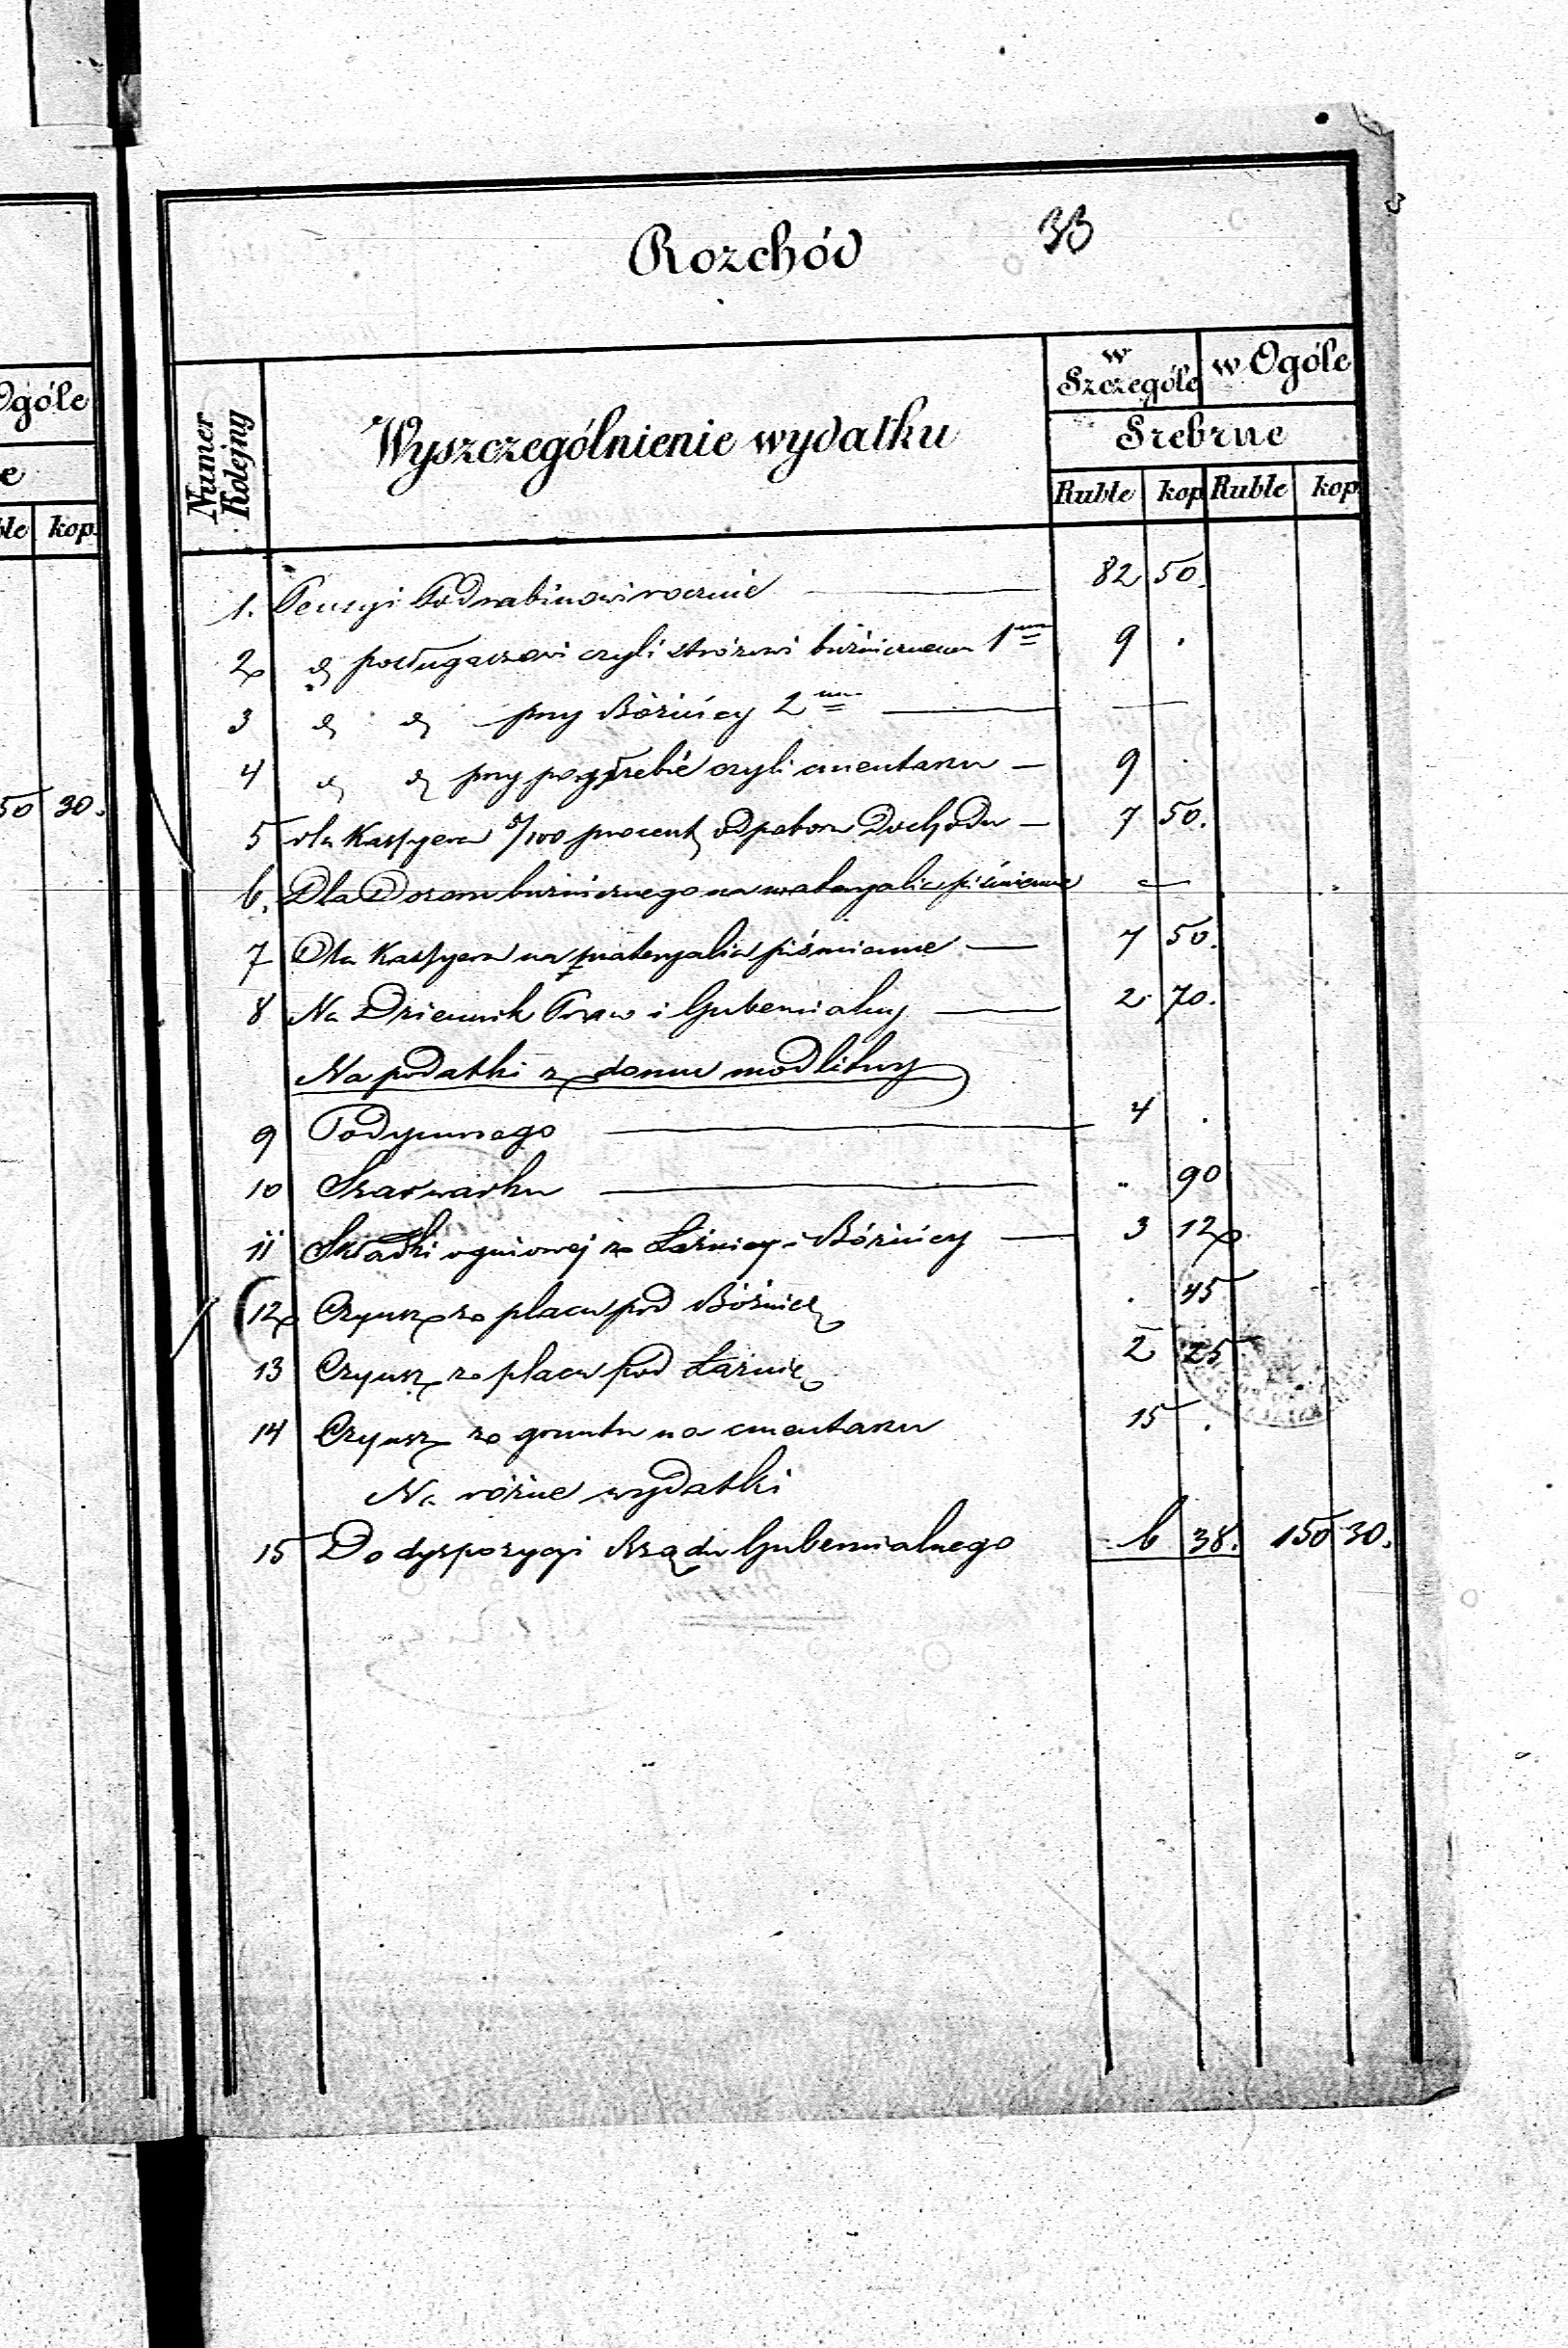 Ogóle
e
ble kop.
50 30.
Rozchód 33
Numer Kolejny
Wyszczególnienie wydatku
w Szczególe
w Ogóle
Srebrne
Ruble kop Ruble kop.
1. Pensyi Podrabinowi rocznie — 82 50.
2 " posługaczowi czyli stróżowi bużnicznemu 1m 9 .
3 " " przy Bóżnicy 2m — —
4 " " przy pogrzebie czyli cmentarzu — 9 .
5 dla Kassyera 5/100 procent od poboru Dochodu — 7 50.
6. Dla Dozoru bużnicznego na materyalia piśmienne —
7 Dla Kassyera na materyalia piśmienne — 7 50.
8 Na Dziennik Praw i Gubernialny — 2. 70.
Na podatki z domu modlitwy
9 Podymnego — 4 .
10 Szarwarku — .. 90
11 Składki ogniowej ze Łaźniey i Bóżnicy — 3 12
12 Czynsz za placu pod Bóżnicę . 45
13 Czynsz za placu pod Łaźnię 2 25
14 Czynsz za gruntu na cmentarzu 15 .
Na różne wydatki
15 Do dyspozycyi Rządu Gubernialnego 6 38. 150 30.